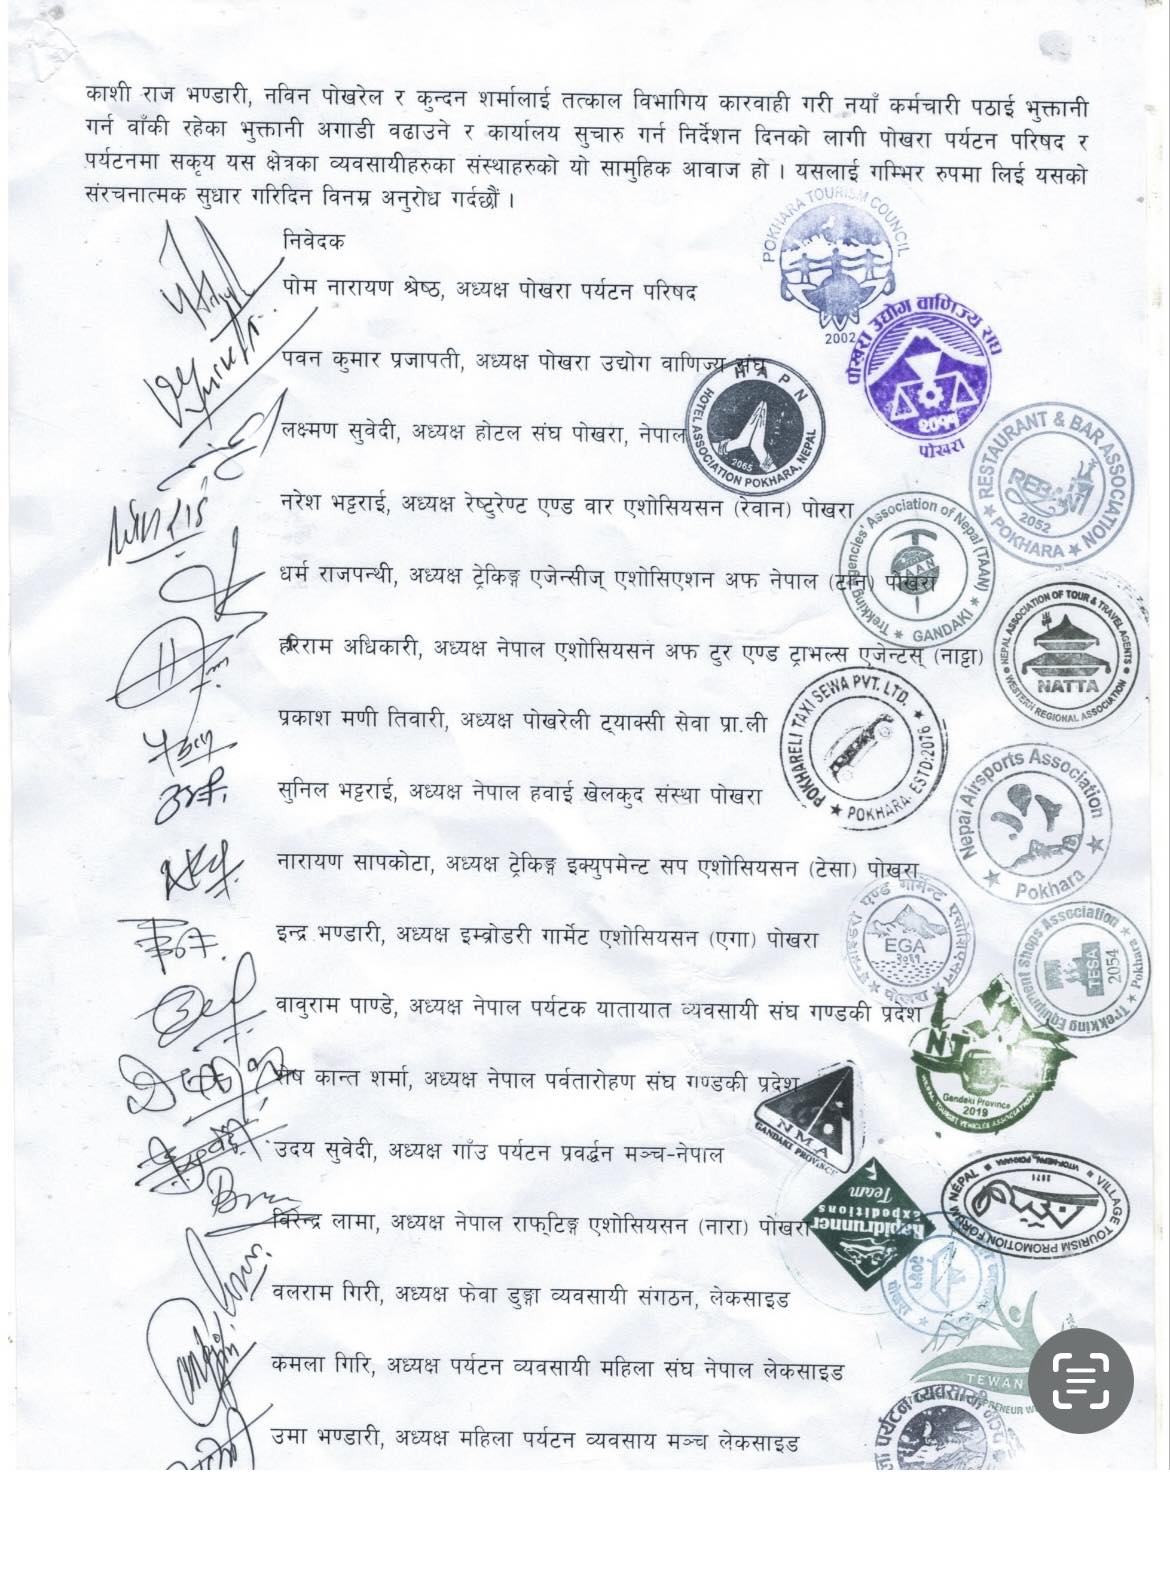 काशी राज भण्डारी, नविन पोखरेल र कुन्दन शर्मालाई तत्काल विभागिय कारवाही गरी नयाँ कर्मचारी पठाई भुक्तानी
गर्न वाँकी रहेका भुक्तानी अगाडी वढाउने र कार्यालय सुचारु गर्न निर्देशन दिनको लागी पोखरा पर्यटन परिषद र
पर्यटनमा सकृय यस क्षेत्रका व्यवसायीहरुका संस्थाहरुको यो सामुहिक आवाज हो । यसलाई गम्भिर रुपमा लिई यसको
संरचनात्मक सुधार गरिदिन विनम्र अनुरोध गर्दछौं ।
POKHARA TOURISM COUNCIL
2002
निवेदक
पोम नारायण श्रेष्ठ, अध्यक्ष पोखरा पर्यटन परिषद
पोखरा उद्योग वाणिज्य संघ
पोखरा
पवन कुमार प्रजापती, अध्यक्ष पोखरा उद्योग वाणिज्य संघ
HAPN
HOTEL ASSOCIATION POKHARA, NEPAL
2065
लक्ष्मण सुवेदी, अध्यक्ष होटल संघ पोखरा, नेपाल
RESTAURANT & BAR ASSOCIATION
REBAN
2052
POKHARA
नरेश भट्टराई, अध्यक्ष रेष्टुरेण्ट एण्ड वार एशोसियसन (रेवान) पोखरा
Trekking Agencies' Association of Nepal (TAAN)
TAAN
GANDAKI
धर्म राजपन्थी, अध्यक्ष ट्रेकिङ्ग एजेन्सीज् एशोसिएशन अफ नेपाल (टान) पोखरा
NEPAL ASSOCIATION OF TOUR & TRAVEL AGENTS
NATTA
WESTERN REGIONAL ASSOCIATION
हरिराम अधिकारी, अध्यक्ष नेपाल एशोसियसन अफ टुर एण्ड ट्राभल्स एजेन्टस् (नाट्टा)
POKHARELI TAXI SEWA PVT. LTD.
POKHARA ESTD:2076
प्रकाश मणी तिवारी, अध्यक्ष पोखरेली ट्याक्सी सेवा प्रा.ली
Nepal Airsports Association
Pokhara
सुनिल भट्टराई, अध्यक्ष नेपाल हवाई खेलकुद संस्था पोखरा
नारायण सापकोटा, अध्यक्ष ट्रेकिङ्ग इक्युपमेन्ट सप एशोसियसन (टेसा) पोखरा
EGA
Trekking Equipment Shops Association
TESA
2054
Pokhara
इन्द्र भण्डारी, अध्यक्ष इम्व्रोडरी गार्मेट एशोसियसन (एगा) पोखरा
वावुराम पाण्डे, अध्यक्ष नेपाल पर्यटक यातायात व्यवसायी संघ गण्डकी प्रदेश
Gandaki Province
2019
शेष कान्त शर्मा, अध्यक्ष नेपाल पर्वतारोहण संघ गण्डकी प्रदेश
NMA
GANDAKI PROVINCE
उदय सुवेदी, अध्यक्ष गाँउ पर्यटन प्रवर्द्धन मञ्च-नेपाल
VILLAGE TOURISM PROMOTION FORUM NEPAL
Rapidrunner
expeditions
Team
विरेन्द्र लामा, अध्यक्ष नेपाल राफ्टिङ्ग एशोसियसन (नारा) पोखरा
वलराम गिरी, अध्यक्ष फेवा डुङ्गा व्यवसायी संगठन, लेकसाइड
कमला गिरि, अध्यक्ष पर्यटन व्यवसायी महिला संघ नेपाल लेकसाइड
TEWAN
उमा भण्डारी, अध्यक्ष महिला पर्यटन व्यवसाय मञ्च लेकसाइड